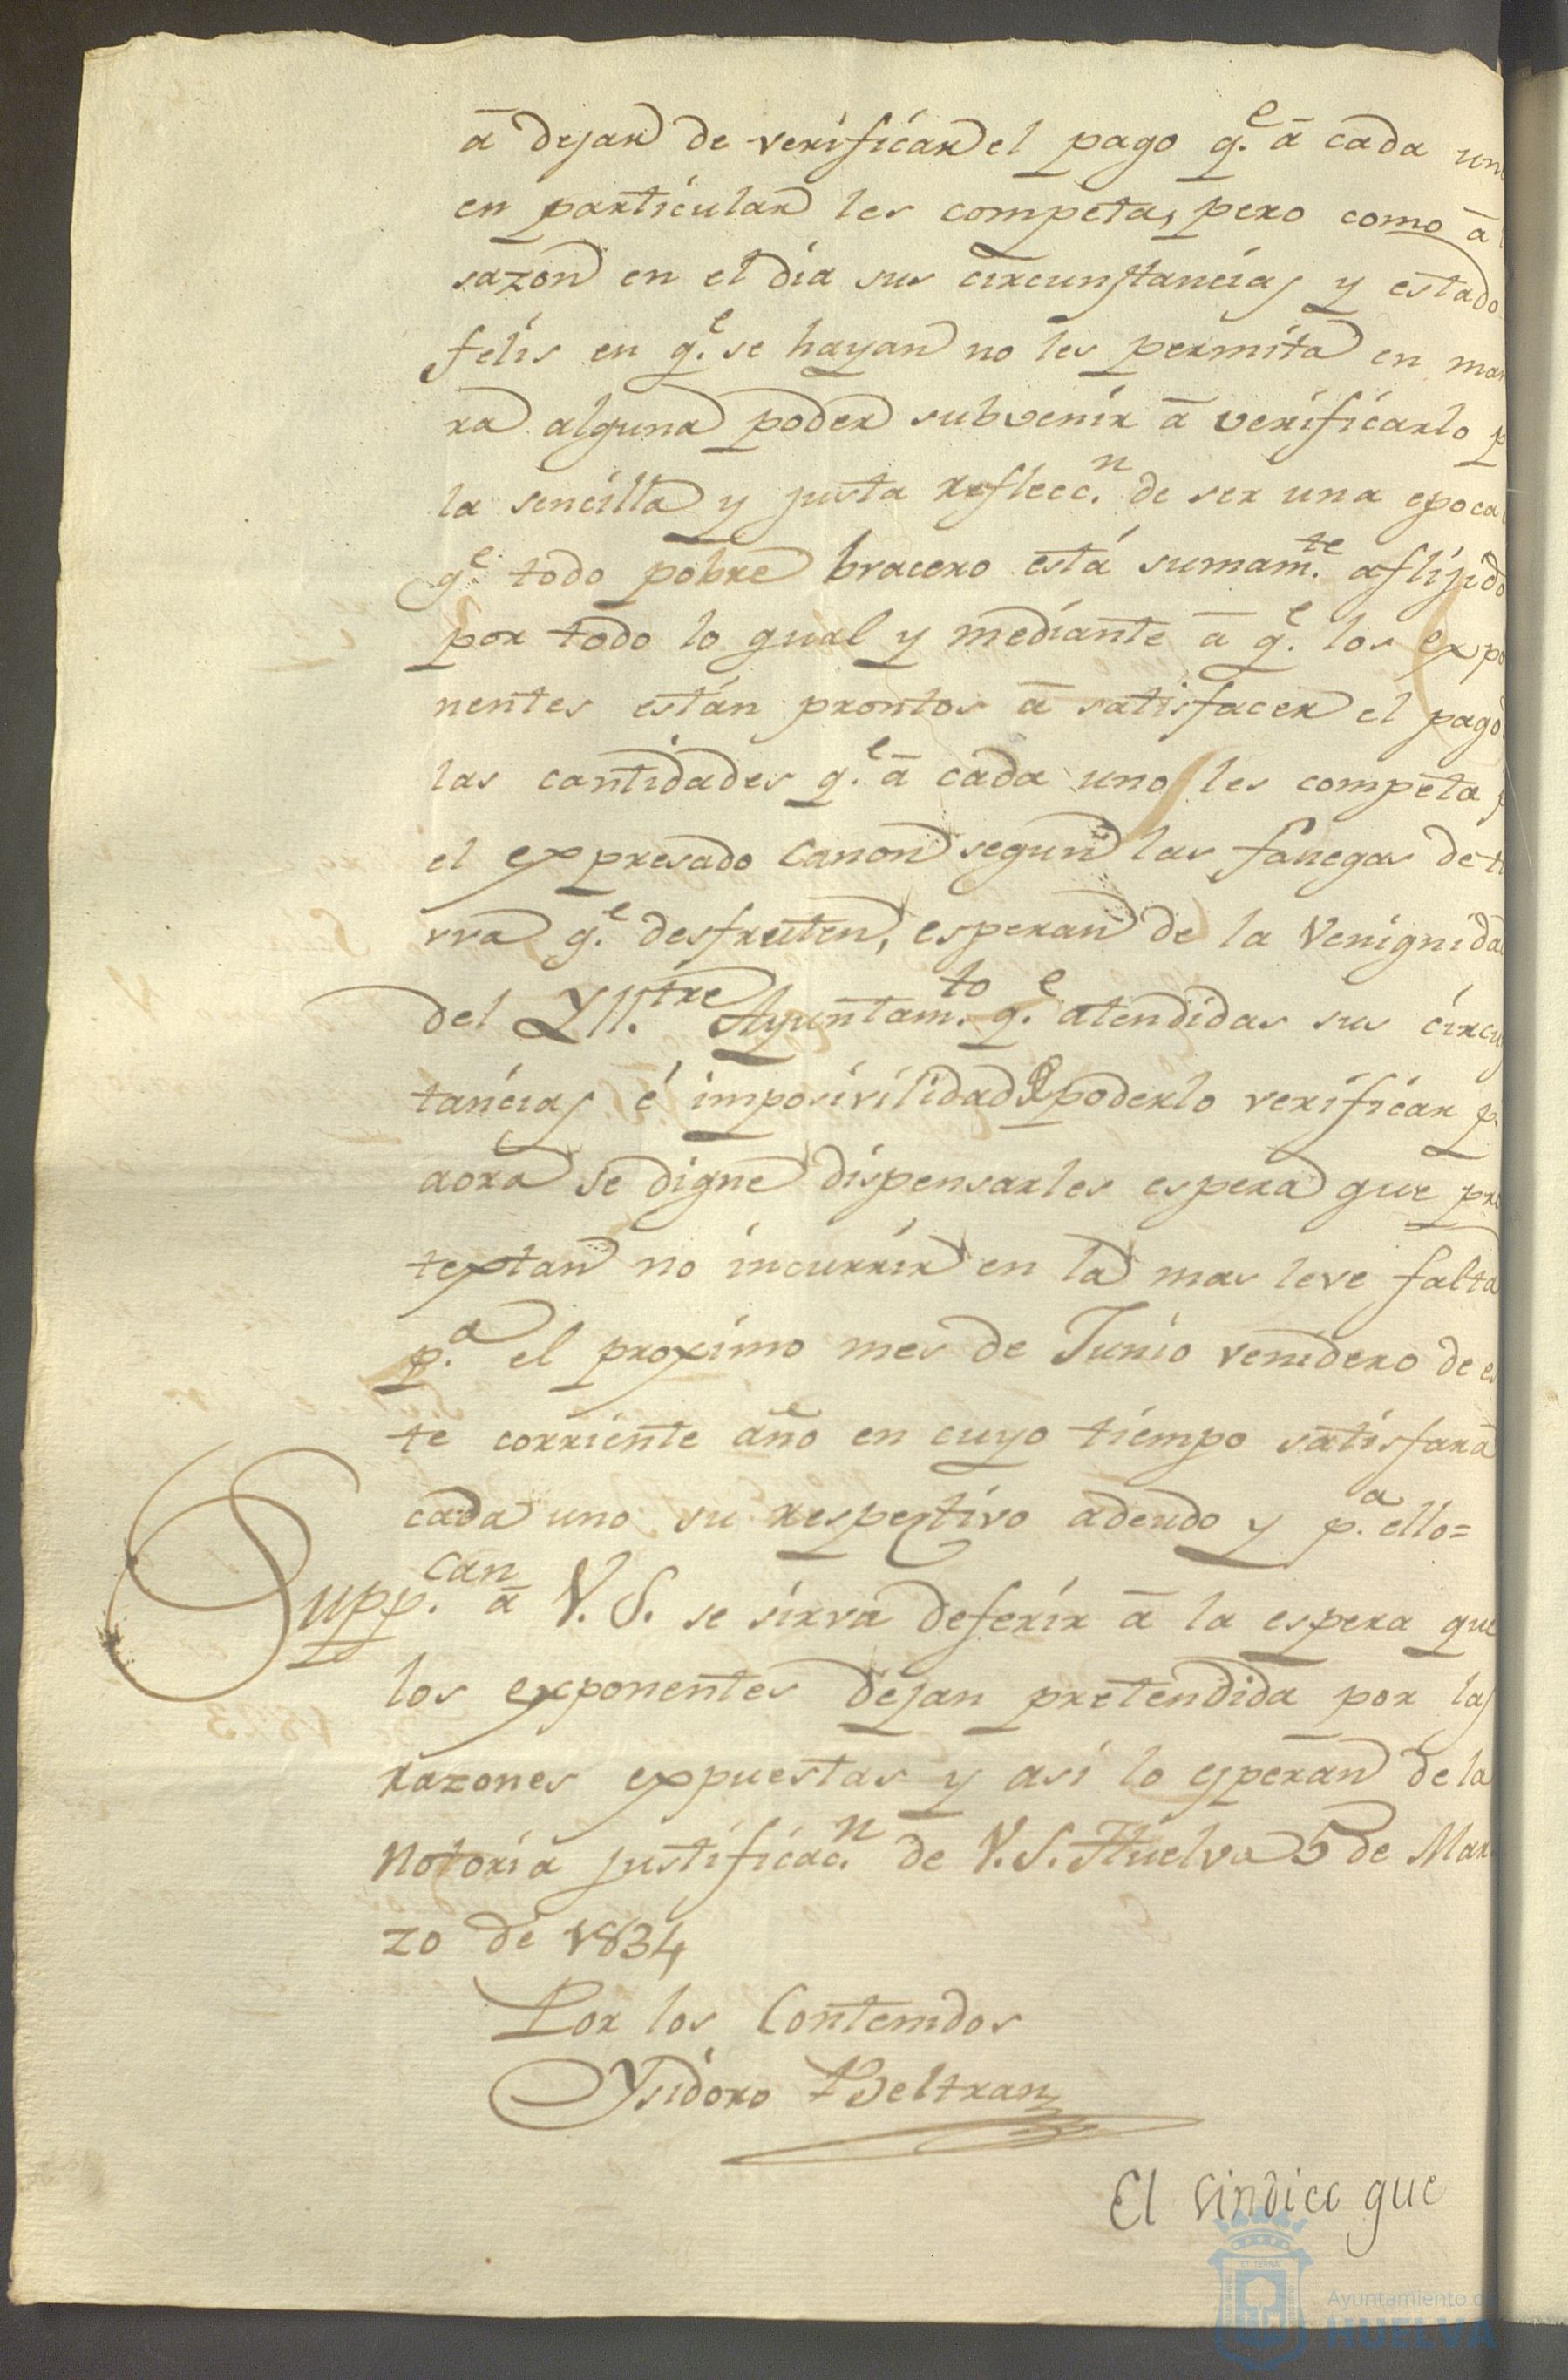 á dejar de verificar el pago q.e á cada un
en particular les competa, pero como á
sazon en el dia sus circunstancias y estado
felis en q.e se hayan no les permita en man
ra alguna poder subvenir á verificarlo p
la sencilla y justa reflecc.n de ser una epoca
q.e todo pobre bracero está sumam.te aflijido
por todo lo qual y mediante á q.e los expo
nentes están prontos á satisfacer el pago
las cantidades q.e á cada uno les competa p
el expresado canon segun las fanegas de ti
rra q.e desfruten, esperan de la Venignida
del Yll.tre Ayuntam.to q.e atendidas sus circu
tancias é imposivilidad de poderlo verificar p.
aora se digne dispensarles espera que pro
textan no incurrir en la mas leve falta
p.a el proximo mes de Junio venidero de es
te corriente año en cuyo tiempo satisfará
cada uno su respectivo adeudo y p.a ello=
Supp.can á V. S. se sirva deferir á la espera que
los exponentes dejan pretendida por las
razones expuestas y asi lo esperan de la
notoria justificac.n de V. S. Huelva 5 de Mar
zo de 1834
Por los Contenidos
Ysidoro Beltran
El sindico que
Ayuntamiento de
HUELVA